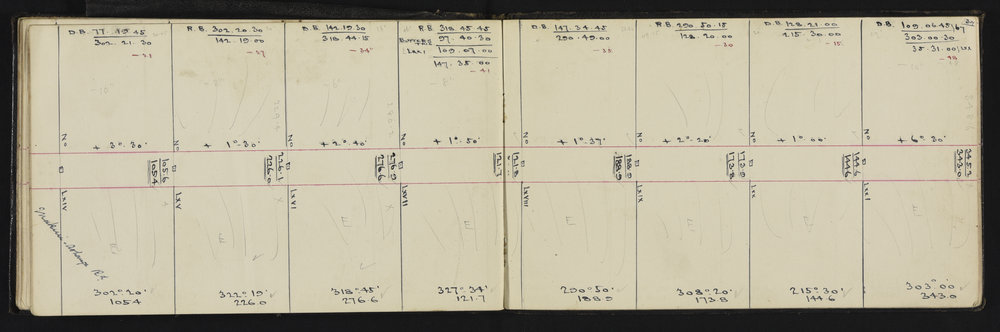 D.B. 77. 19. 45
302. 21. 30
- 21
R.B. 302. 20. 30
142. 19. 00
- 27
D.B. 142. 19. 30
318. 44. 15
- 34
R.B. 318. 45. 45
97. 40. 30
Lxxi 109. 07. 00
147. 35. 00
- 41
D.B. 147. 34. 45
290. 49. 00
- 35
R.B. 290. 50. 15
128. 20. 00
- 30
D.B. 128. 21. 00
215. 30. 00
- 15
D.B. 109. 06. 45
303. 00. 30
35. 31. 00
No
+ 3° 30'
No
+ 1° 30'
No
+ 2° 40'
No
+ 1° 50'
No
+ 1° 37'
No
+ 2° 20'
No
+ 1° 00'
No
+ 6° 30'
105.6
105.4
226.1
226.0
276.9
276.6
121.7
121.8
188.9
188.9
173.9
173.8
144.6
144.6
345.2
343.0
Lxiv
Lxv
Lxvi
Lxvii
Lxviii
Lxix
Lxx
Lxxi
E
E
E
E
E
E
302° 20'
105.4
322° 19'
226.0
318° 45'
276.6
327° 34'
121.7
290° 50'
188.9
308° 20'
173.8
215° 30'
144.6
303° 00'
343.0